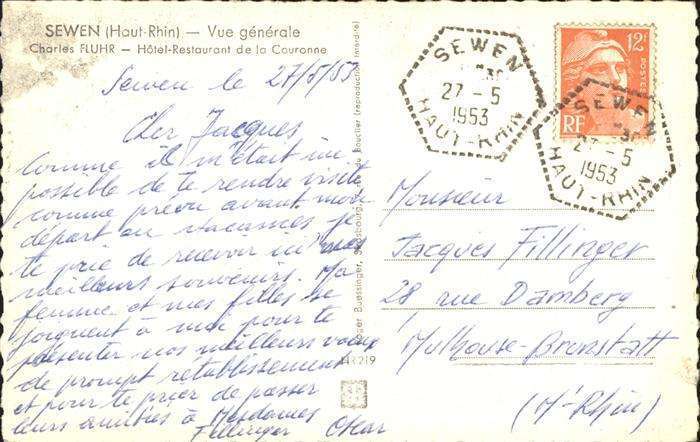 SEWEN (Haut-Rhin) — Vue générale
Charles FLUHR — Hôtel-Restaurant de la Couronne
Sewen le 27/5/53
Cher Jacques
Comme il m'était im-
possible de te rendre visite
comme prévu avant mon
départ en vacances je
te prie de recevoir ici mes
meilleurs souvenirs. Ma
femme et mes filles se
joignent à moi pour te
présenter nos meilleurs vœux
de prompt rétablissement
et pour te prier de passer
leurs amitiés à Mesdames
Fillinger Oscar
12F
POSTES
RF
SEWEN
27 - 5
1953
HAUT-RHIN
SEWEN
27 - 5
1953
HAUT-RHIN
Monsieur
Jacques Fillinger
28 rue Damberg
Mulhouse-Brunstatt
(Ht Rhin)